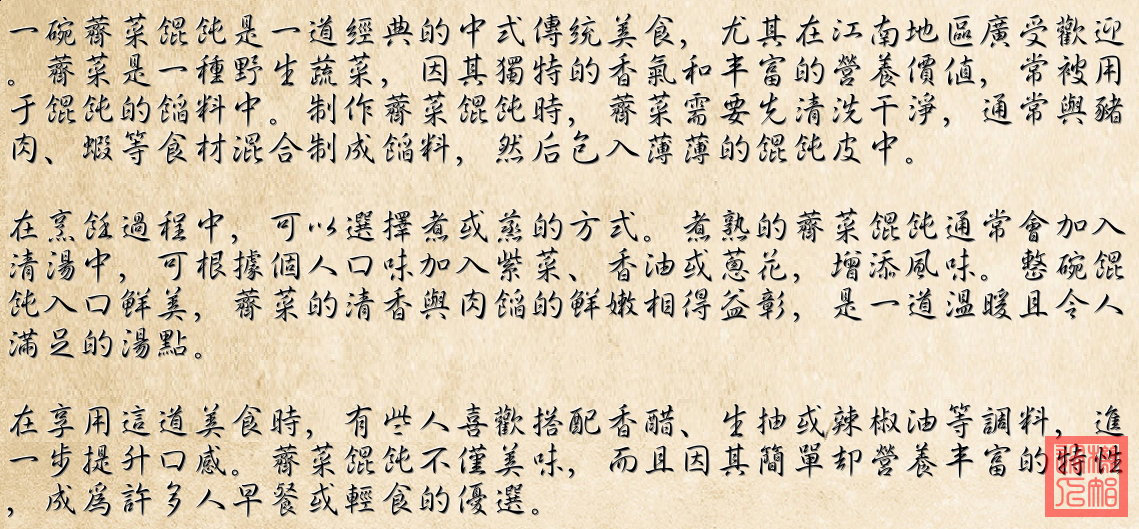 一碗薺菜餛飩是一道經典的中式傳統美食，尤其在江南地區廣受歡迎
。薺菜是一種野生蔬菜，因其獨特的香氣和丰富的營養價值，常被用
于餛飩的餡料中。制作薺菜餛飩時，薺菜需要先清洗干淨，通常與豬
肉、蝦等食材混合制成餡料，然后包入薄薄的餛飩皮中。
在烹飪過程中，可以選擇煮或蒸的方式。煮熟的薺菜餛飩通常會加入
清湯中，可根據個人口味加入紫菜、香油或蔥花，增添風味。整碗餛
飩入口鮮美，薺菜的清香與肉餡的鮮嫩相得益彰，是一道溫暖且令人
滿足的湯點。
在享用這道美食時，有些人喜歡搭配香醋、生抽或辣椒油等調料，進
一步提升口感。薺菜餛飩不僅美味，而且因其簡單却營養丰富的特性
，成爲許多人早餐或輕食的優選。